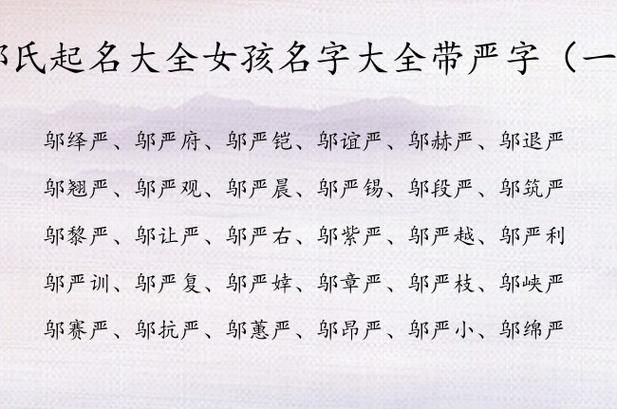 邬氏起名大全女孩名字大全带严字（一
邬绎严、邬严府、邬严铠、邬谊严、邬赫严、邬退严
邬翘严、邬严观、邬严晨、邬严锡、邬段严、邬筑严
邬黎严、邬让严、邬严右、邬紫严、邬严越、邬严利
邬严训、邬严复、邬严婞、邬章严、邬严枝、邬峡严
邬赛严、邬抗严、邬蕙严、邬昂严、邬严小、邬绵严